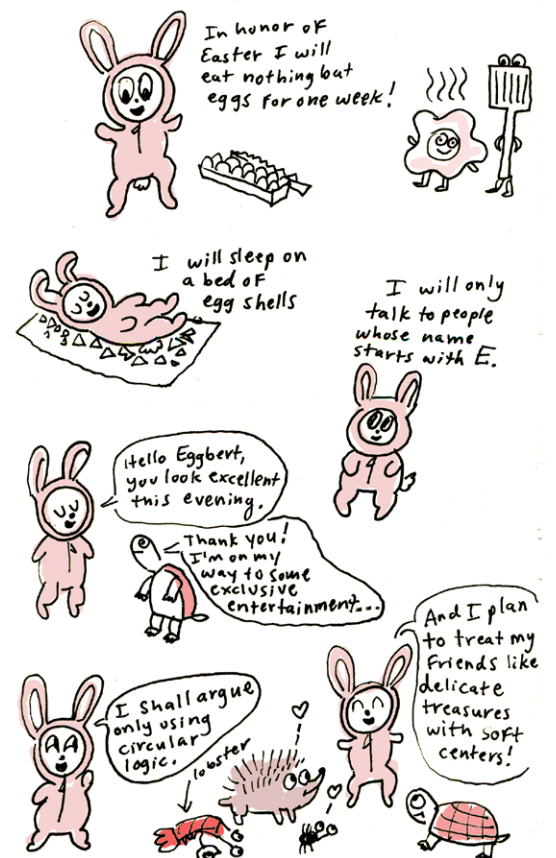 In honor of
Easter I will
eat nothing but
eggs for one week!
I will sleep on
a bed of
egg shells
I will only
talk to people
whose name
starts with E.
Hello Eggbert,
you look excellent
this evening.
Thank you!
I'm on my
way to some
exclusive
entertainment...
I shall argue
only using
circular
logic.
lobster
And I plan
to treat my
friends like
delicate
treasures
with soft
centers!